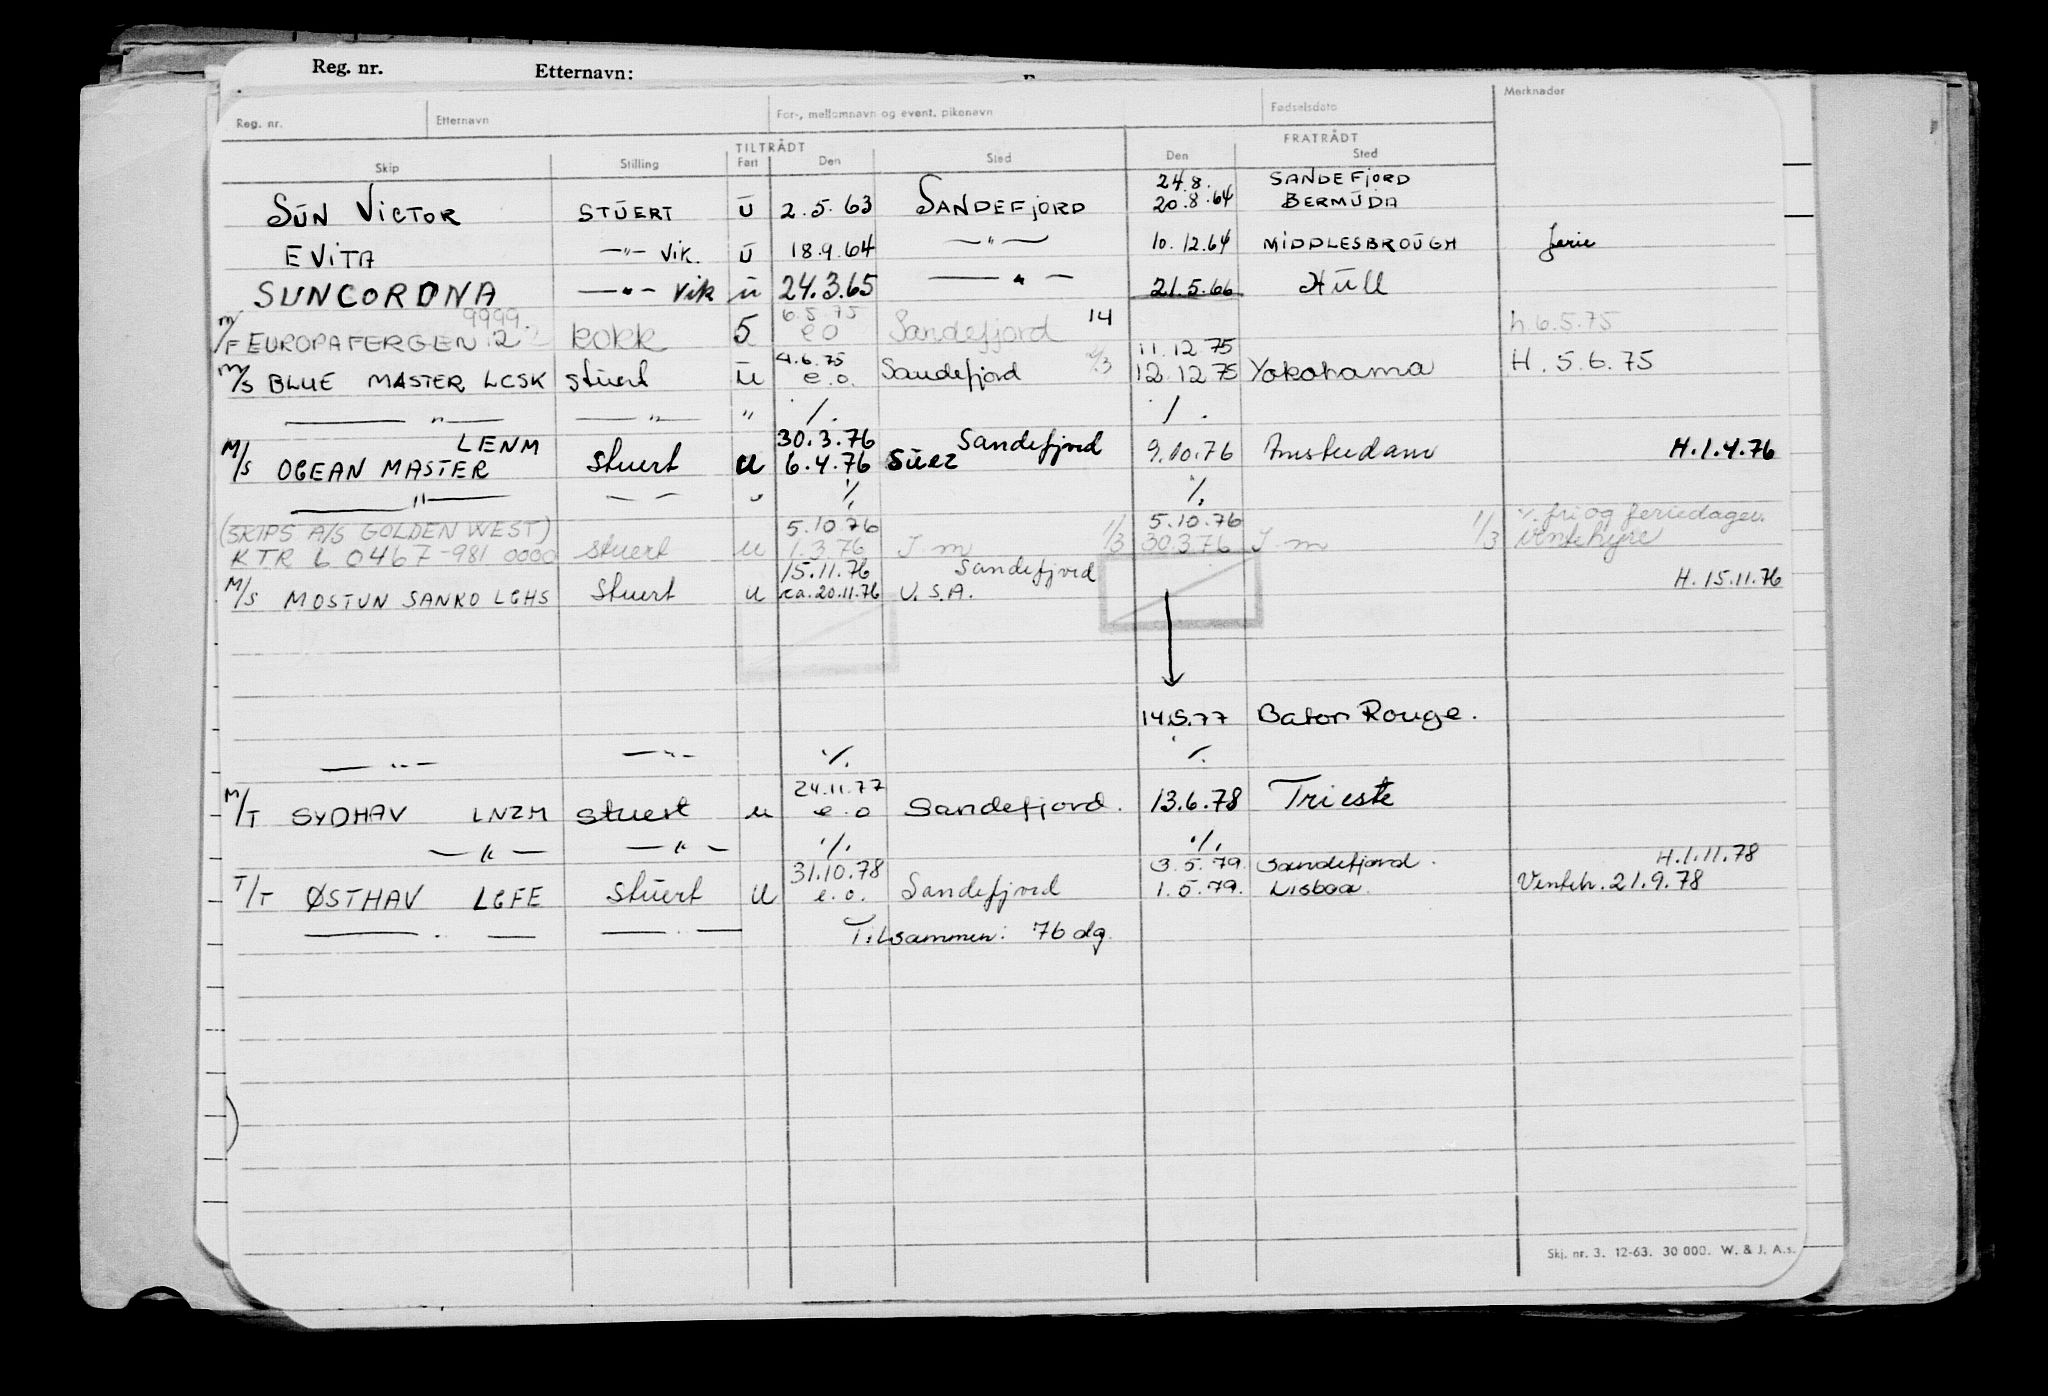 Reg. nr. Etternavn:
Reg. nr. Etternavn For-, mellomnavn og event. pikenavn Fødselsdato Merknader
TILTRÅDT FRATRÅDT
Skip Stilling Fart Den Sted Den Sted
24.8. SANDEFJORD
SUN VICTOR STUERT U 2.5.63 SANDEFJORD 20.8.64 BERMUDA
EVITA —"— VIK. U 18.9.64 —"— 10.12.64 MIDDLESBROUGH ferie
SUNCORONA —"— Vik u 24.3.65 —"— 21.5.66 Hull
9999. 6.5.75 14
M/F EUROPAFERGEN 2 kokk 5 e o Sandefjord h.6.5.75
4.6.75 11.12.75
M/S BLUE MASTER LCSK stuert u e.o. Sandefjord 2/3 12.12.75 Yokohama H. 5.6.75
—"— —"— " %. %.
LENM 30.3.76 Sandefjord
M/S OCEAN MASTER stuert u 6.4.76 Suez 9.10.76 Amsterdam H.1.4.76
—"— — — " %. %.
(SKIPS A/S GOLDEN WEST) 5.10.76 5.10.76 %. fri og feriedager.
KTR L 0467-981 0000 stuert u 1.3.76 I m 1/3 30.3.76 I m 1/3 Ventehyre
15.11.76 Sandefjord H. 15.11.76
M/S MOSTUN SANKO LGHS Stuert u ca. 20.11.76 U.S.A.
14.5.77 Baton Rouge.
—"— —"— %. %.
24.11.77
M/T SYDHAV LNZM stuert u e.o Sandefjord. 13.6.78 Trieste
—"— —"— %. %.
31.10.78 3.5.79. Sandefjord. H.1.11.78
T/T ØSTHAV LGFE stuert U e.o. Sandefjord 1.5.79. Lisboa. Venteh. 21.9.78
—"— —"— Tilsammen: 76 dg.
Skj. nr. 3. 12-63. 30 000. W. & J. A.s.